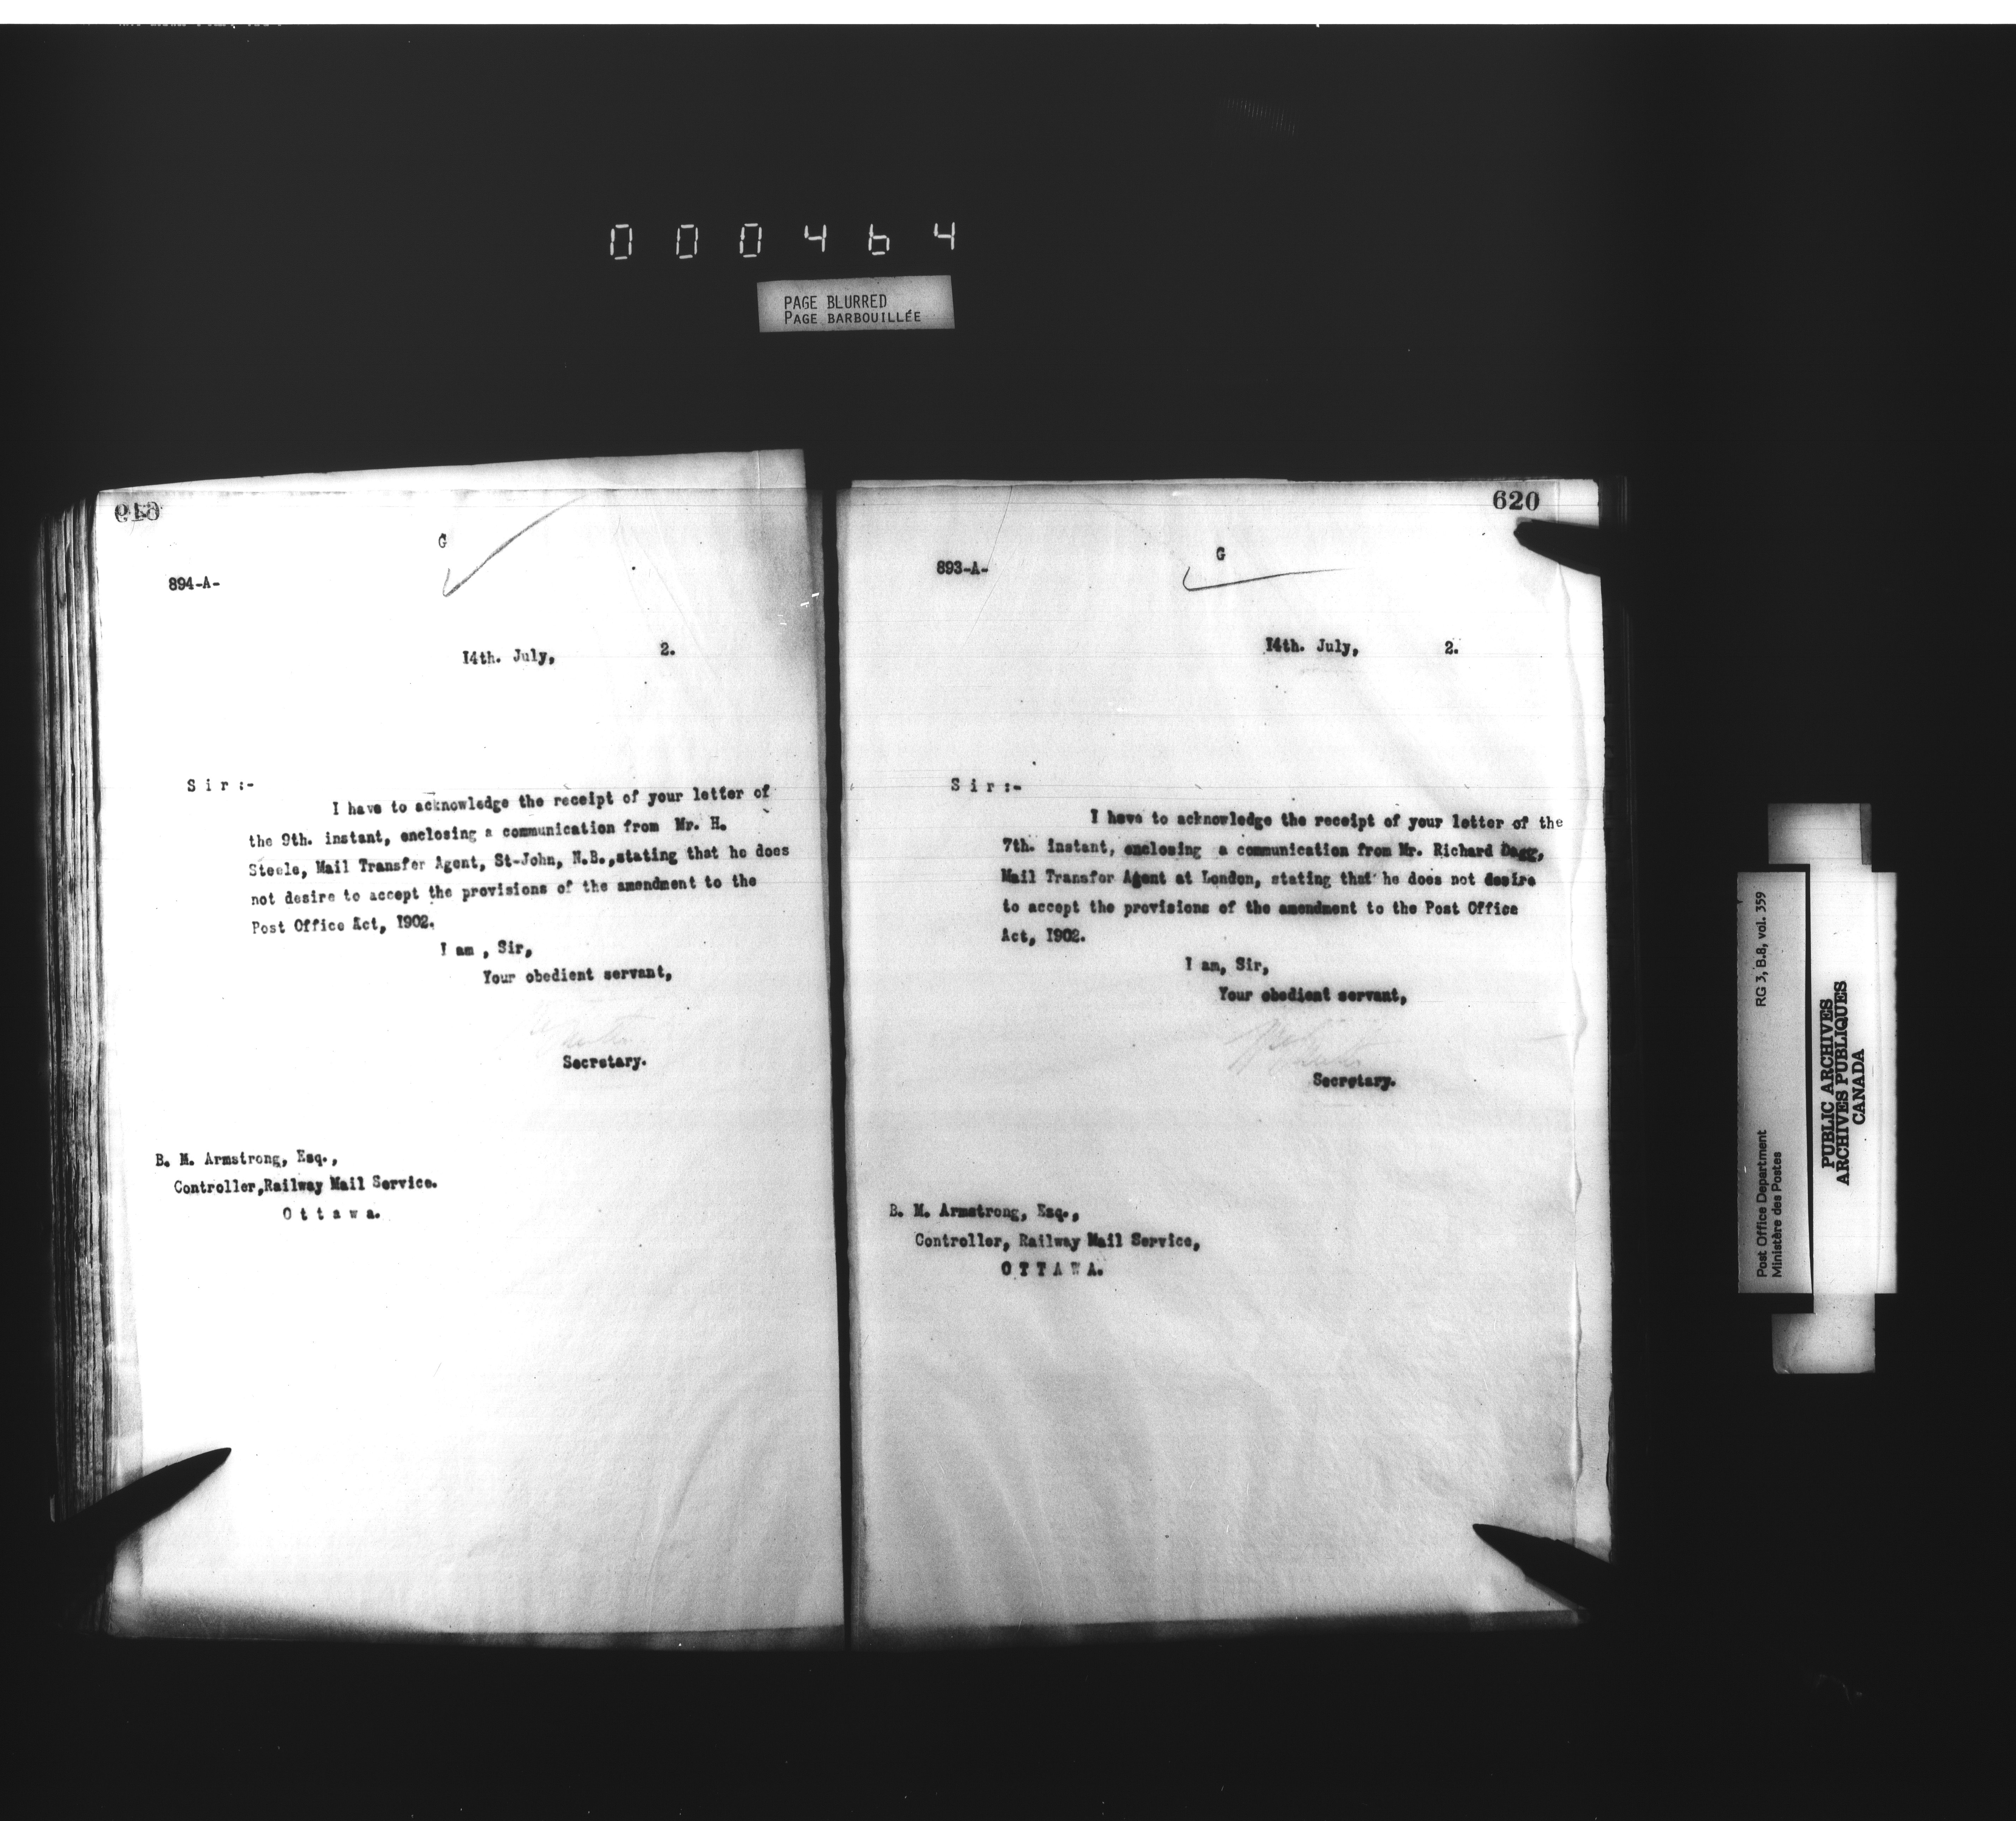 000464
PAGE BLURRED
PAGE BARBOUILLÉE
G
894-A-
14th. July, 2.
S i r :-
I have to acknowledge the receipt of your letter of
the 9th. instant, enclosing a communication from Mr. H.
Steele, Mail Transfer Agent, St-John, N.B.,stating that he does
not desire to accept the provisions of the amendment to the
Post Office Act, 1902.
I am , Sir,
Your obedient servant,
Secretary.
B. M. Armstrong, Esq.,
Controller,Railway Mail Service.
O t t a w a.
620
G
893-A-
14th. July, 2.
S i r :-
I have to acknowledge the receipt of your letter of the
7th. instant, enclosing a communication from Mr. Richard Dagg,
Mail Transfer Agent at London, stating that he does not desire
to accept the provisions of the amendment to the Post Office
Act, 1902.
I am, Sir,
Your obedient servant,
Secretary.
B. M. Armstrong, Esq.,
Controller, Railway Mail Service,
O T T A W A.
Post Office Department RG 3, B.8, vol. 359
Ministère des Postes
PUBLIC ARCHIVES
ARCHIVES PUBLIQUES
CANADA